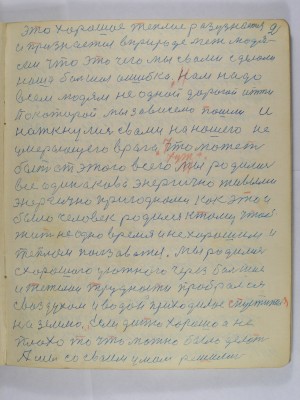 это хорошее теплое раздуваетя 2
и признается в природе меж людя-
ми что это чего мы с вами сделали
наша большая ошибка, Нам надо
всем людям не одной дорогой итти
По которой мы зависемо пошли. И
наткнулися с вами на нашего не
умерающего врага, что может
хуже
быть от этого всего Мы родилися
все одинаково энергично живыми
энергично пригодными Как это и
было человек родился к тому, чтоб
жить не одно время и не хорошим и
теплом пользоватся. Мы родилися
с хорошого уютного через большие
и тяжелые трудности пробралися
с воздухом и водой приходилося спустится
на землю. Если дитю хорошо а не
плохо то что можно было делать
А мы со своим умом решили